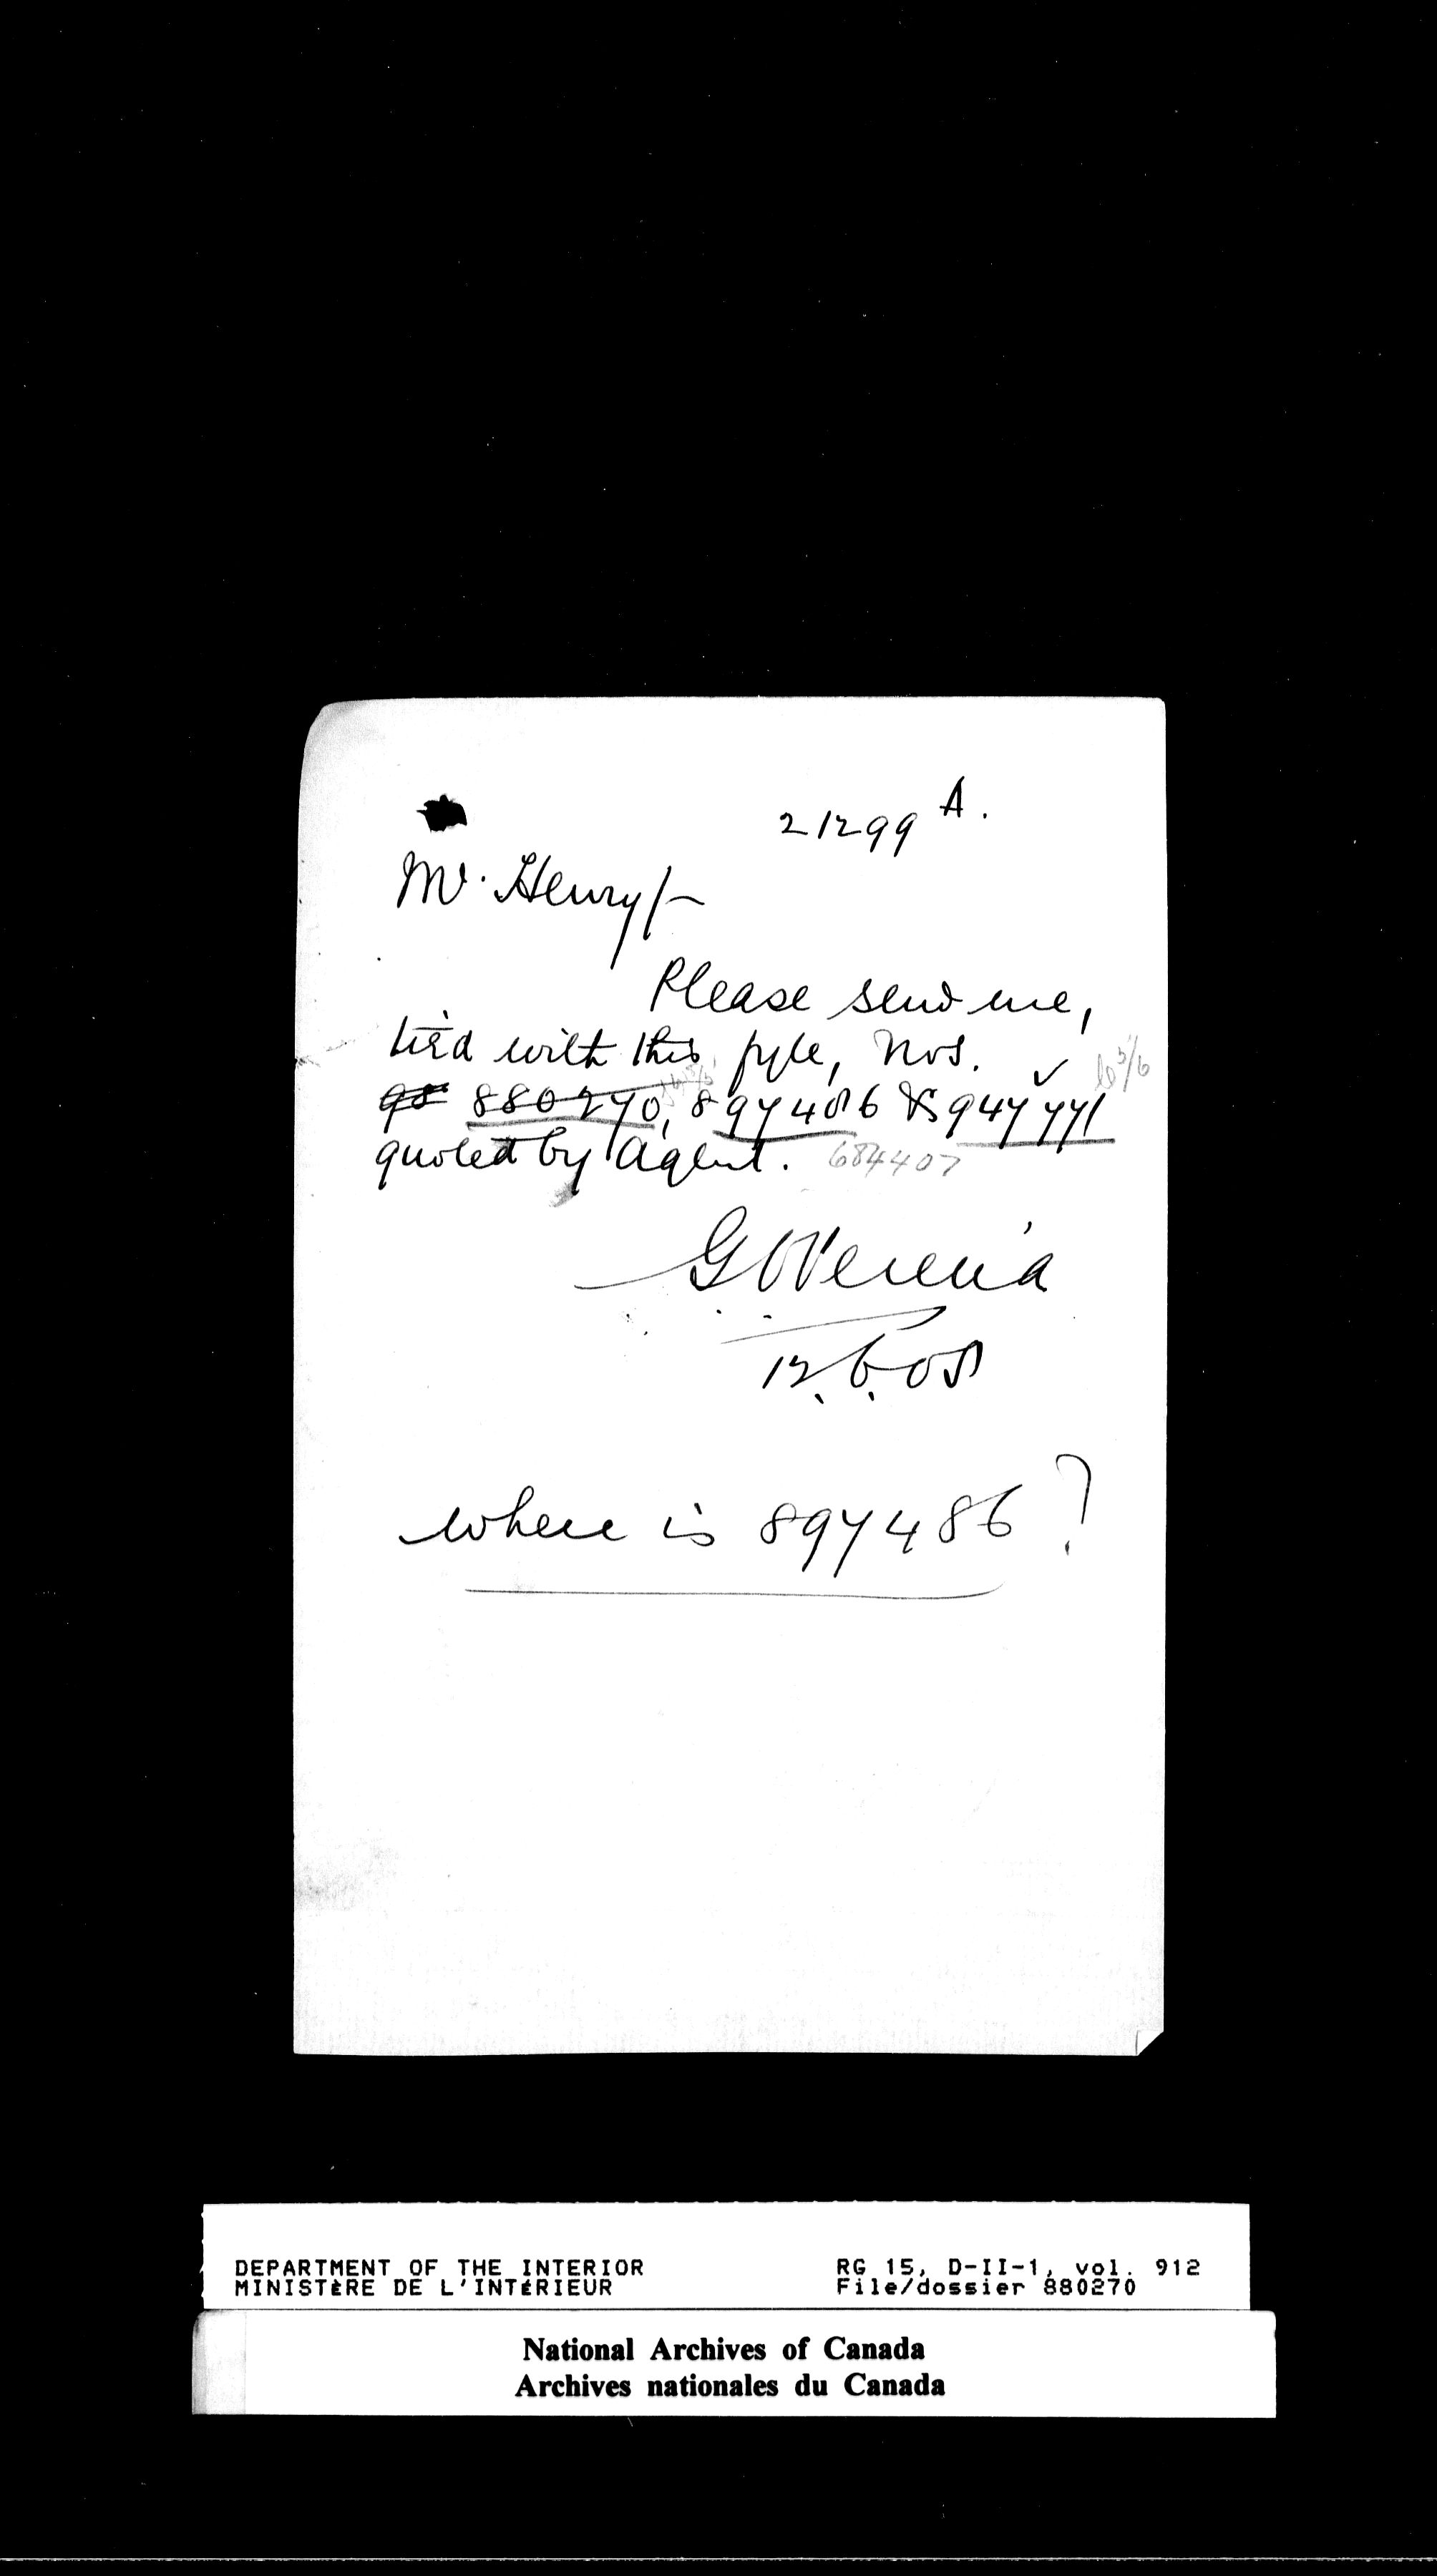 21299 A.
Mr. Henry/-
Please send me,
tied with this fyle, Nos.
98 880270, 897486 & 947771
quoted by Agent. 684407
12.6.08
where is 897486?
DEPARTMENT OF THE INTERIOR
MINISTÈRE DE L'INTÉRIEUR
RG 15, D-II-1, vol. 912
File/dossier 880270
National Archives of Canada
Archives nationales du Canada